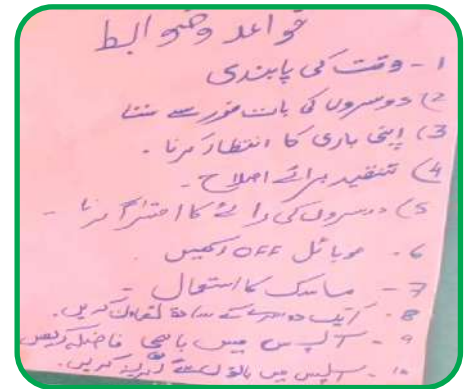 قواعد وضوابط
1 - وقت کی پابندی
2) دوسروں کی بات غور سے سننا
3) اپنی باری کا انتظار کرنا ۔
4) تنقید برائے اصلاح ۔
5) دوسروں کی رائے کا احترام کرنا ۔
6 - موبائل OFF رکھیں
7 - ماسک کا استعمال ۔
8 - ایک دوسرے کے ساتھ تعاون کریں ۔
9 - آپس میں باہمی فاصلہ رکھیں
10 - آپس میں کریں ۔